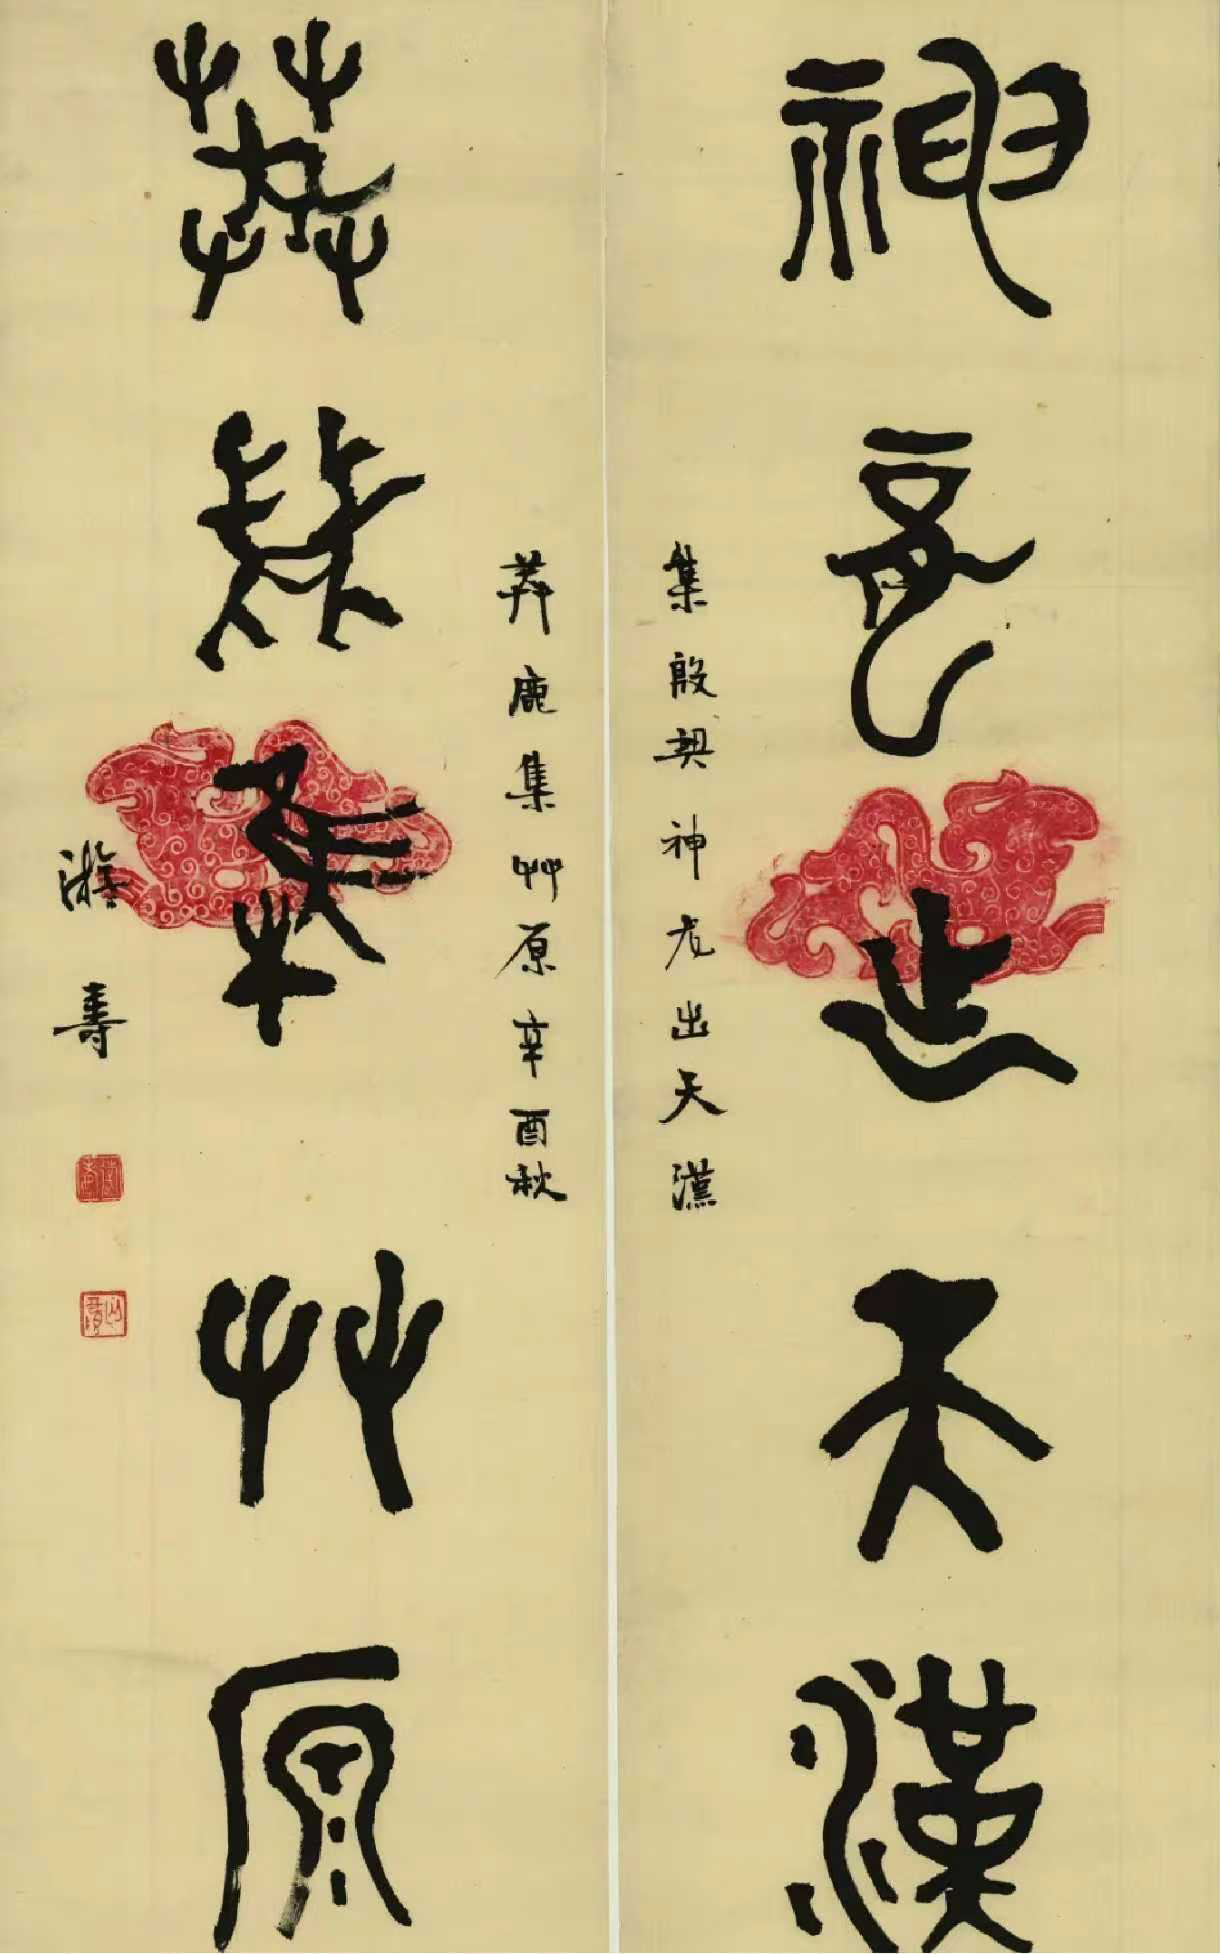 神龍出天漢
集殷契神龙出天漢
莽鹿集艸原辛酉秋
莽鹿集艸原
游寿